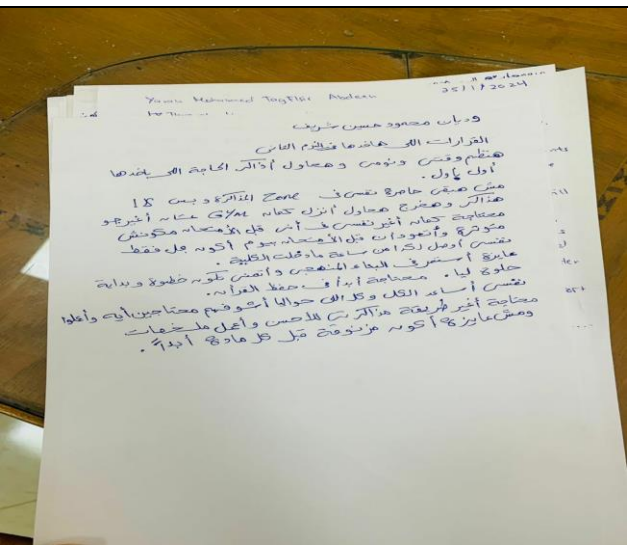 25/1/2024
Yomna Mohammed TagElsir Abdeen
وديان محمود حسن شريف
القرارات اللي هاخدها في الترم التاني
هنظم وقتي ونومي وهحاول أذاكر الحاجة اللي باخدها
أول بأول.
مش هبقى حاصرة نفسي في Zone المذاكرة وبس !
هذاكر وهخرج هحاول أنزل كمان Gym عشان أغير جو
محتاجة كمان أغير نفسي في أني قبل الامتحان مكونش
متوترة وأتعود إن قبل الامتحان بيوم أكون بحل فقط
نفسي أوصل لكرا من ساعة ما دخلت الكلية.
عايزة أستمر في البناء المنهجي وأتمنى تكون خطوة وبداية
حلوة ليا. محتاجة أبدأ في حفظ القرآن.
نفسي أساعد الكل وكل اللي حواليا أشوفهم محتاجين أيه وأعملوا
محتاجة أغير طريقة مذاكرتي للأحسن وأعمل ملخصات
ومش عايزة أكون مزنوقة قبل كل مادة أبداً.